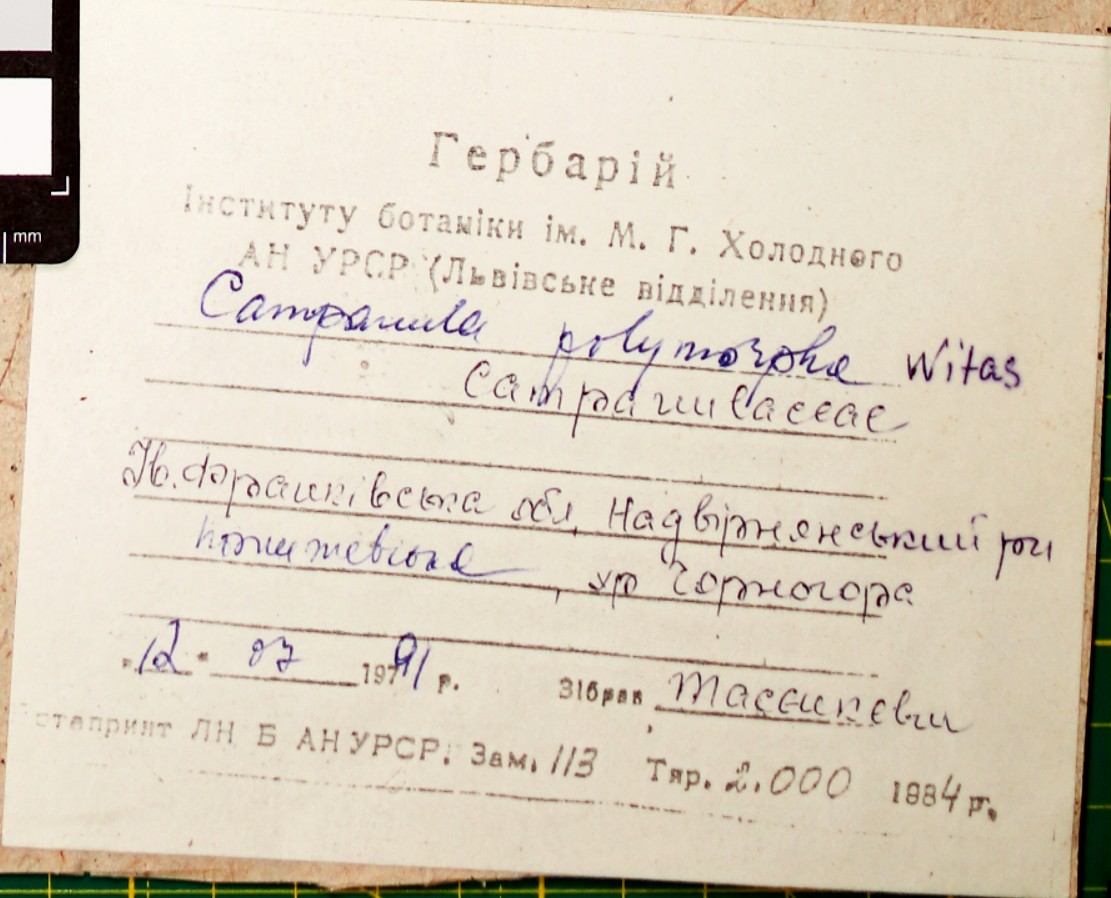 mm
Гербарій
Інституту ботаніки ім. М. Г. Холодного
АН УРСР (Львівське відділення)
Campanula polymorpha Witas
Campanulaceae
Ів. Франківська обл, Надвірнянський р-н
ур Чорногора
"12" 07 1991 р. Зібрав
стапринт ЛН Б АН УРСР. Зам. 113 Тир. 2.000 1984 р.